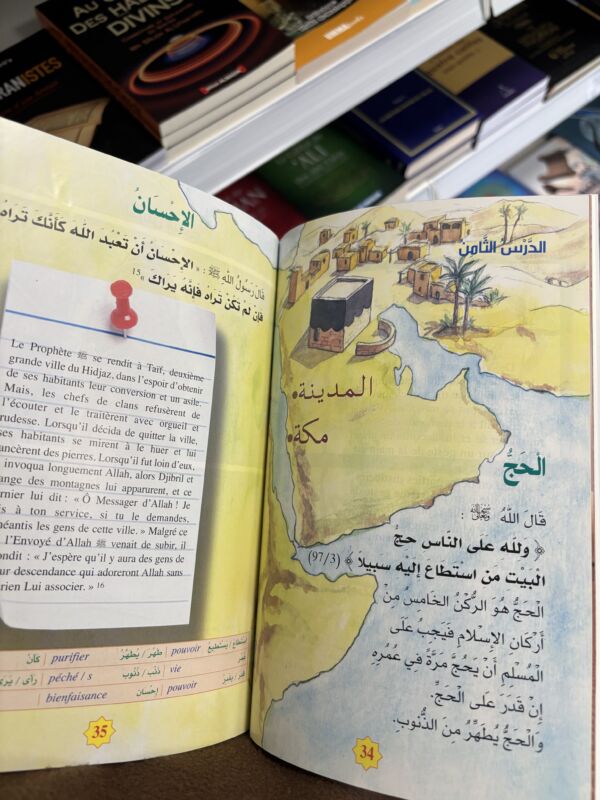 AU
DES HA
DIVINS
ANISTES
ʿALI
الدَّرْسُ الثَّامِنُ
المدينة
مكة
الْحَجُّ
قَالَ اللَّهُ ﷻ :
﴿ ولله على النّاس حجّ
الْبَيْت مَن استطاع إليْه سَبيلا ﴾ (97/3)
الْحَجُّ هُوَ الرُّكْنُ الْخَامِس مِنْ
أَرْكَانِ الإِسْلاَمِ فَيَجِبُ عَلَى
الْمُسْلِمِ أَنْ يَحُجَّ مَرَّةً فِي عُمُرِهِ
إِنْ قَدَرَ عَلَى الْحَجِّ.
وَالْحَجُّ يُطَهِّرُ مِنَ الذُّنُوبِ.
34
الإِحْسَانُ
قَالَ رَسُولُ اللَّهِ ﷺ : « الإِحْسَانُ أَنْ تَعْبُدَ اللَّهَ كَأَنَّكَ تَرَاهُ
فَإِنْ لَمْ تَكُنْ تَرَاهُ فَإِنَّهُ يَرَاكَ »15
Le Prophète ﷺ se rendit à Taïf, deuxième
grande ville du Hidjaz, dans l'espoir d'obtenir
de ses habitants leur conversion et un asile.
Mais, les chefs de clans refusèrent de
l'écouter et le traitèrent avec orgueil et
rudesse. Lorsqu'il décida de quitter la ville,
ses habitants se mirent à le huer et lui
lancèrent des pierres. Lorsqu'il fut loin d'eux,
invoqua longuement Allah, alors Djibril et
ange des montagnes lui apparurent, et ce
rnier lui dit : « Ô Messager d'Allah ! Je
is à ton service, si tu le demandes,
néantis les gens de cette ville. » Malgré ce
l'Envoyé d'Allah ﷺ venait de subir, il
ondit : « J'espère qu'il y aura des gens de
ur descendance qui adoreront Allah sans
rien Lui associer. » 16
اسْتَطَاعَ / يَسْتَطِيعُ pouvoir طَهَّرَ / يُطَهِّرُ purifier كَأَنَّ
عُمُر vie ذَنْب / ذُنُوب péché / s رَأَى / يَرَى
قَدَرَ / يَقْدِرُ pouvoir إِحْسَان bienfaisance
35